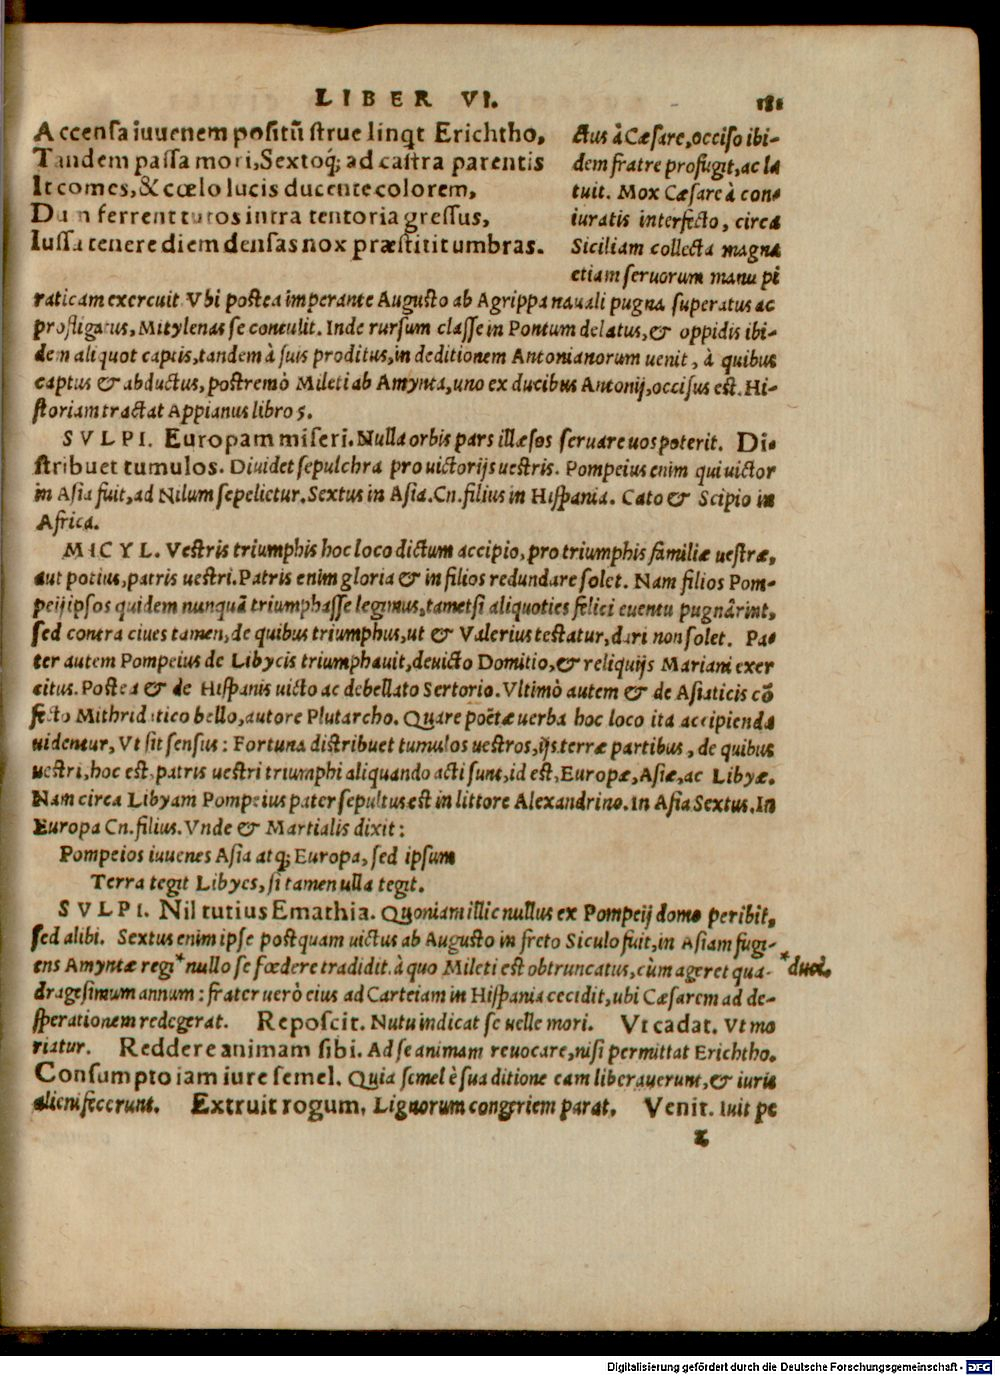 LIBER VI. 181
Accensa iuuenem positū strue linqt Erichtho,
Tandem passa mori, Sextoq́; ad castra parentis
It comes, & cœlo lucis ducente colorem,
Dum ferrent tutos intra tentoria gressus,
Iussa tenere diem densas nox præstitit umbras.
ctus à Cæsare, occiso ibi-
dem fratre profugit, ac la
tuit. Mox Cæsare à con-
iuratis interfecto, circa
Siciliam collecta magna
etiam seruorum manu pi
raticam exercuit. Vbi postea imperante Augusto ab Agrippa nauali pugna superatus ac
profligatus, Mitylenas se contulit. Inde rursum classe in Pontum delatus, & oppidis ibi-
dem aliquot captis, tandem à suis proditus, in deditionem Antonianorum uenit, à quibus
captus & abductus, postremò Mileti ab Amynta, uno ex ducibus Antonij, occisus est. Hi-
storiam tractat Appianus libro 5.
SVLPI. Europam miseri. Nulla orbis pars illæsos seruare uos poterit. Di-
stribuet tumulos. Diuidet sepulchra pro uictorijs uestris. Pompeius enim qui uictor
in Asia fuit, ad Nilum sepelietur. Sextus in Asia. Cn. filius in Hispania. Cato & Scipio in
Africa.
MICYL. Vestris triumphis hoc loco dictum accipio, pro triumphis familiæ uestræ,
aut potius, patris uestri. Patris enim gloria & in filios redundare solet. Nam filios Pom-
peij ipsos quidem nunquā triumphasse legimus, tametsi aliquoties felici euentu pugnârint,
sed contra ciues tamen, de quibus triumphus, ut & Valerius testatur, dari non solet. Pa-
ter autem Pompeius de Libycis triumphauit, deuicto Domitio, & reliquijs Mariani exer
citus. Postea & de Hispanis uicto ac debellato Sertorio. Vltimò autem & de Asiaticis cō
fecto Mithridatico bello, autore Plutarcho. Quare poëtæ uerba hoc loco ita accipienda
uidentur, Vt sit sensus: Fortuna distribuet tumulos uestros, ijs terræ partibus, de quibus
uestri, hoc est, patris uestri triumphi aliquando acti sunt, id est, Europæ, Asiæ, ac Libyæ.
Nam circa Libyam Pompeius pater sepultus est in littore Alexandrino. In Asia Sextus. In
Europa Cn. filius. Vnde & Martialis dixit:
Pompeios iuuenes Asia atq; Europa, sed ipsum
Terra tegit Libyes, si tamen ulla tegit.
SVLPI. Nil tutius Emathia. Quoniam illic nullus ex Pompeij domo peribit,
sed alibi. Sextus enim ipse postquam uictus ab Augusto in freto Siculo fuit, in Asiam fugi-
ens Amyntæ regi* nullo se fœdere tradidit. à quo Mileti est obtruncatus, cùm ageret qua- *duci.
dragesimum annum: frater uerò eius ad Carteiam in Hispania cecidit, ubi Cæsarem ad de-
sperationem redegerat. Reposcit. Nutu indicat se uelle mori. Vt cadat. Vt mo
riatur. Reddere animam sibi. Ad se animam reuocare, nisi permittat Erichtho.
Consumpto iam iure semel. Quia semel è sua ditione eam liberauerunt, & iuris
alieni fecerunt. Extruit rogum, Lignorum congeriem parat, Venit. Iuit pe
z
Digitalisierung gefördert durch die Deutsche Forschungsgemeinschaft - DFG